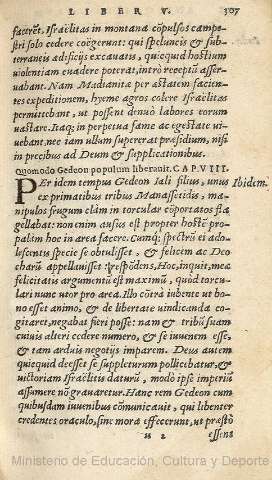 LIBER V. 307
facerēt, Israëlitas in montana cōpulsos campe-
stri solo cedere coëgerunt: qui speluncis & sub-
terraneis ædificijs excauatis, quicquid hostium
uiolentiam euadere poterat, intrò receptū asser-
uabant. Nam Madianitæ per æstatem facien-
tes expeditionem, hyeme agros colere Israëlitas
permittebant, ut possent denuò labores eorum
uastare. Itaq; in perpetua fame ac egestate ui-
uebant, nec iam ullum supererat præsidium, nisi
in precibus ad Deum & supplicationibus.
Quomodo Gedeon populum liberauit. CAP. VIII.
PEr idem tempus Gedeon Iasi filius, unus Ibidem.
ex primatibus tribus Manassetidis, ma-
nipulos frugum clàm in torcular cōportatos fla
gellabat: non enim ausus est propter hostē pro-
palàm hoc in area facere. Cumq; spectrū ei ado-
lescentis specie se obtulisset, & felicem ac Deo
charū appellauisset: respōdens, Hoc, inquit, meæ
felicitatis argumentū est maximū, quòd torcu-
lari nunc utor pro area. Illo cōtrà iubente ut bo-
no esset animo, & de libertate uindicanda co-
gitaret, negabat fieri posse: nam & tribū suam
cuiuis alteri cedere numero, & se iuuenem esse,
& tam arduis negotijs imparem. Deus autem
quicquid deesset se suppleturum pollicebatur, &
uictoriam Israëlitis daturū, modò ipse imperiū
assumere nō grauaretur. Hanc rem Gedeon cum
quibusdam iuuenibus cōmunicauit, qui libenter
credentes oraculo, sine mora effecerunt, ut præstò
u 2 essent
Ministerio de Educación, Cultura y Deporte